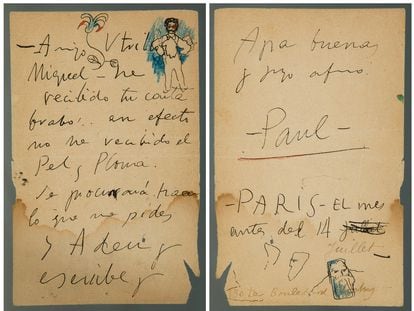 - Amigo Utrillo
Miguel - he
recibido tu carta
brabo!.. en efecto
no he recibido el
Pel y Ploma.
Se procurará hacer
lo que me pides
y Adeu y
escribe y
Apa buenas
y tuyo afmo.
- Paul -
- PARIS - EL mes
antes del 14
Juillet -
Boulevard